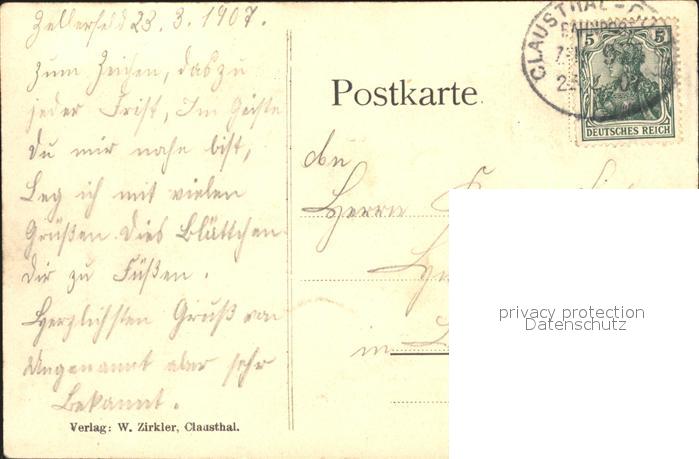 Zellerfeld 23. 3. 1907.
Zum Zeichen, das zu
jeder Frist, Im Geiste
du mir nahe bist,
Leg ich mit vielen
Grüßen Dies Blättchen
dir zu Füßen.
Herzlichsten Gruß von
Ungenannt aber sehr
Bekannt.
Verlag: W. Zirkler, Clausthal.
Postkarte
An
Herrn
in
CLAUSTHAL-
5 5
DEUTSCHES REICH
privacy protection
Datenschutz